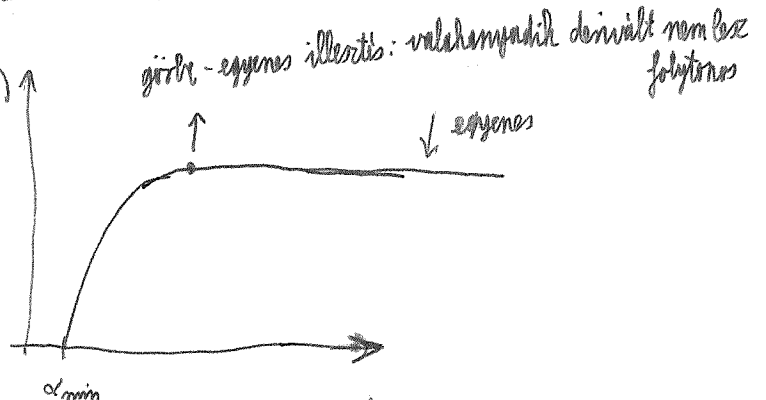 görbe - egyenes illesztés: valahanyadik derivált nem lesz
folytonos
egyenes
αmin